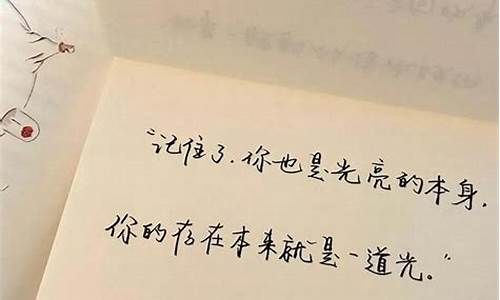 “记住了，你也是光亮的本身，
你的存在本来就是一道光。”